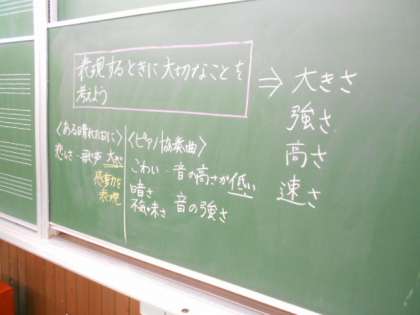 表現するときに大切なことを
考えよう
⇒ 大きさ
強さ
高さ
速さ
〈ある晴れた日に〉
悲しさ 大きさ
感動を
表現
〈ピアノ協奏曲〉
こわい 音の高さが低い
暗さ
不気味さ 音の強さ